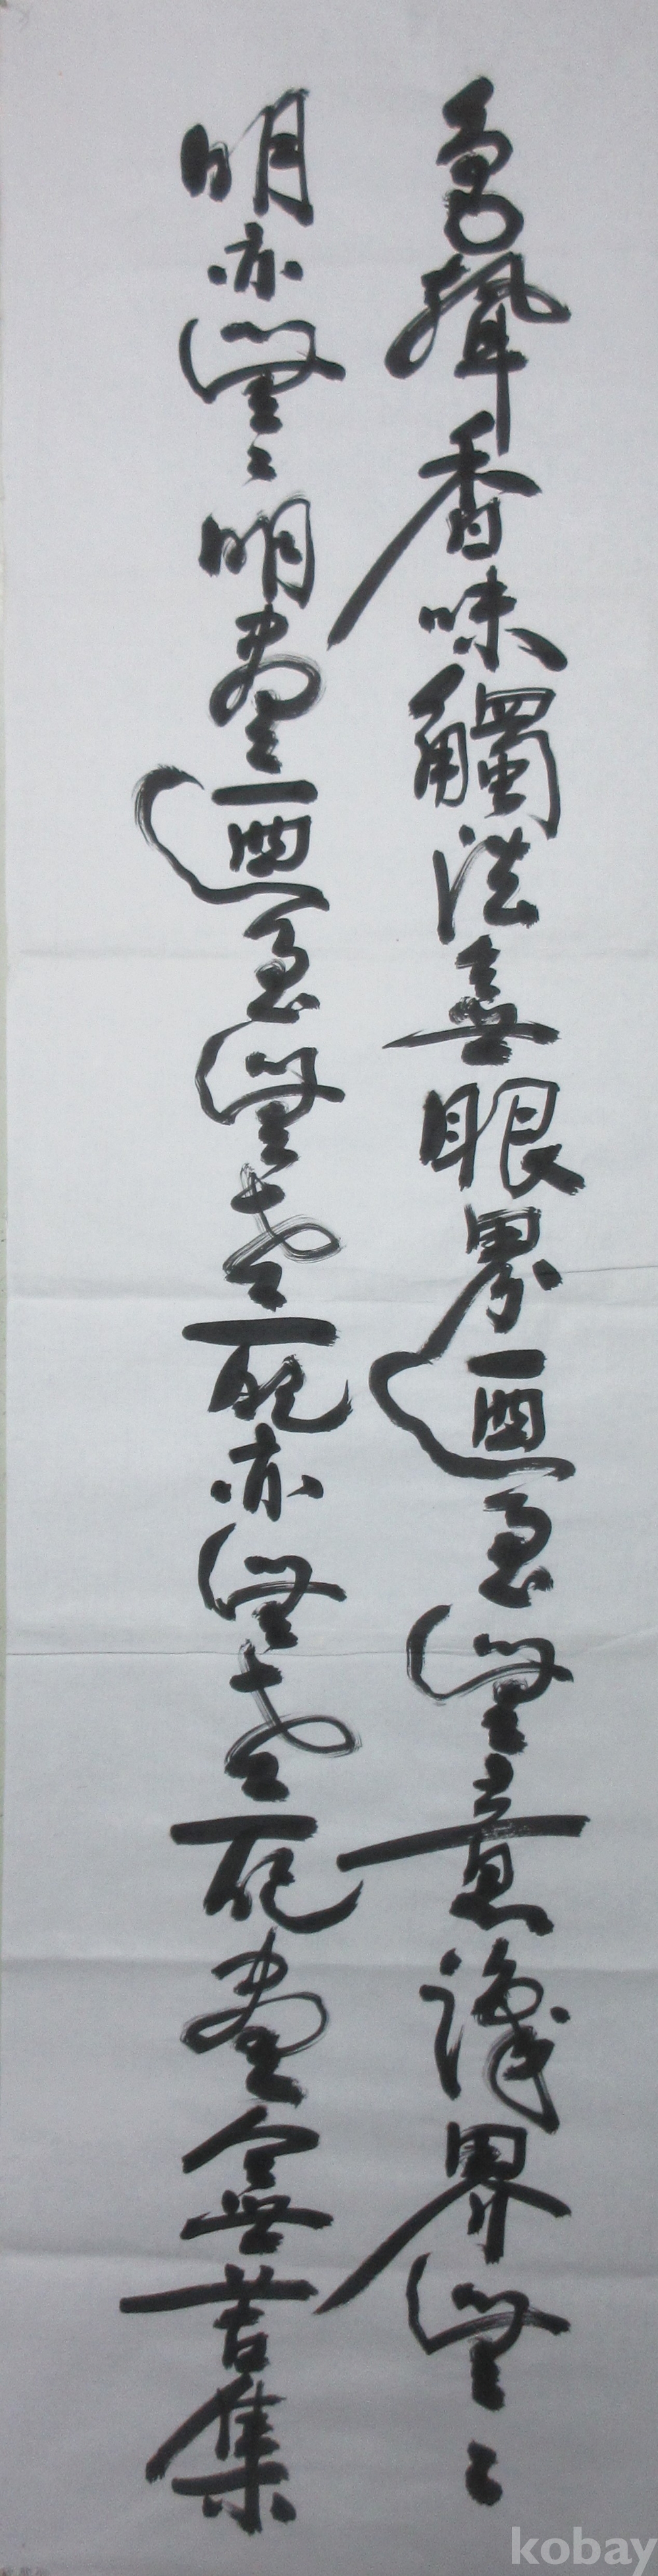 色聲香味觸法無眼界迺至無意識界無〻
明亦無〻明盡迺至無老死亦無老死盡無苦集
kobay